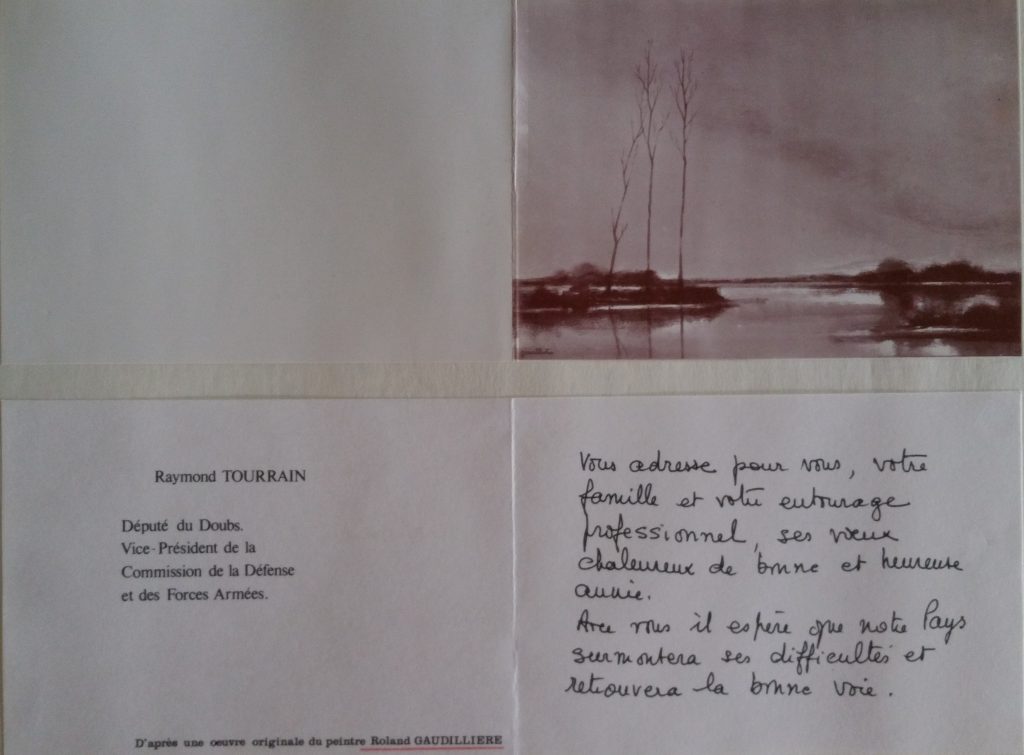 Raymond TOURRAIN
Député du Doubs.
Vice-Président de la
Commission de la Défense
et des Forces Armées.
D'après une oeuvre originale du peintre Roland GAUDILLIERE
Vous adresse pour vous, votre
famille et votre entourage
professionnel, ses vœux
chaleureux de bonne et heureuse
année.
Avec vous il espère que notre Pays
surmontera ses difficultés et
retrouvera la bonne voie.